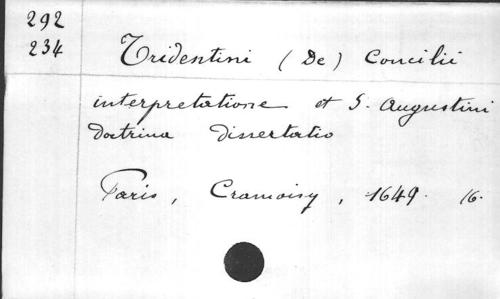 292
234
Tridentini (De) Concilii
interpretatione et S. Augustini
doctrina dissertatio
Paris, Cramoisy, 1649. 16.